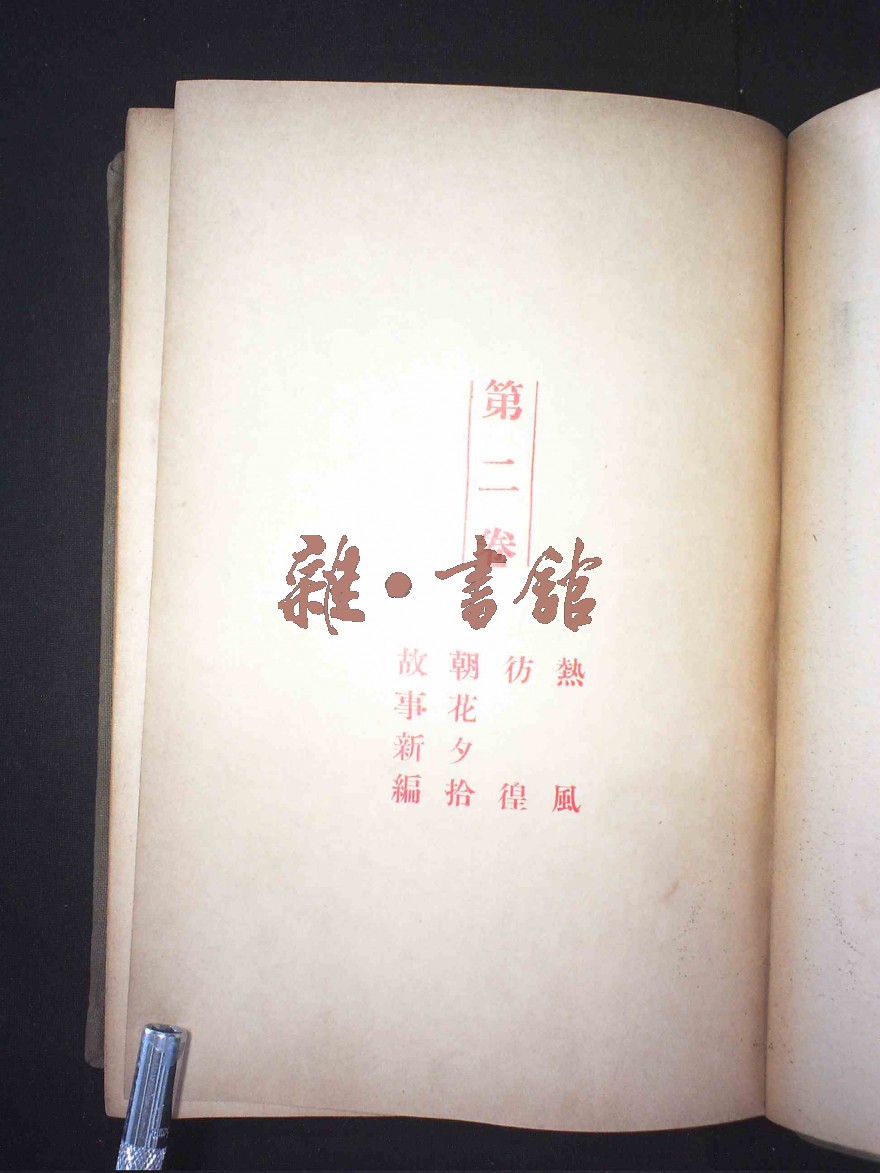 第二卷
雜·書館
熱風
彷徨
朝花夕拾
故事新編